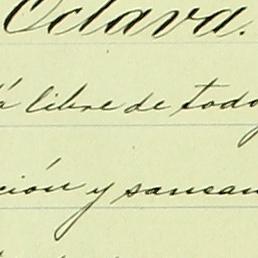 Octava.
á libre de todo
ción y sanean